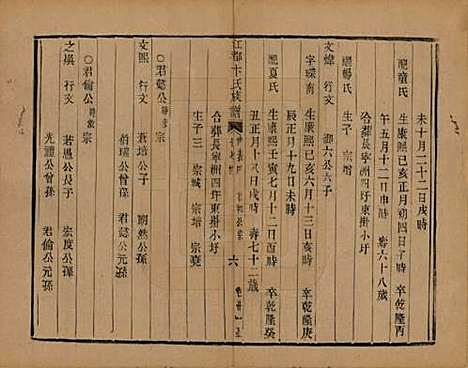 未十月二十二日戌時
配童氏
生康熙己亥正月初四日子時 卒乾隆丙
午五月十二日 壽六十八歲
合葬長寧洲四圩東掛小圩
生子 六子
文煒 行文
繼楊氏
字嶸南
生康熙己亥六月十三日亥時 卒乾隆庚
辰正月十九日未時
配夏氏
生康熙壬寅七月十二日酉時 卒乾隆癸
丑正月十八日戌時 壽七十二歲
合葬長寧洲四圩東掛小圩
生子三 宗城 宗增 宗堯
江都卞氏族譜
六
文熙 行文
蒼培公子 朗然公孫
伯瑞公曾孫 君懿公元孫
○君懿公 宗
○君倫公 宗
之琪 行文
若愚公長子 宏度公孫
光麗公曾孫 君倫公元孫